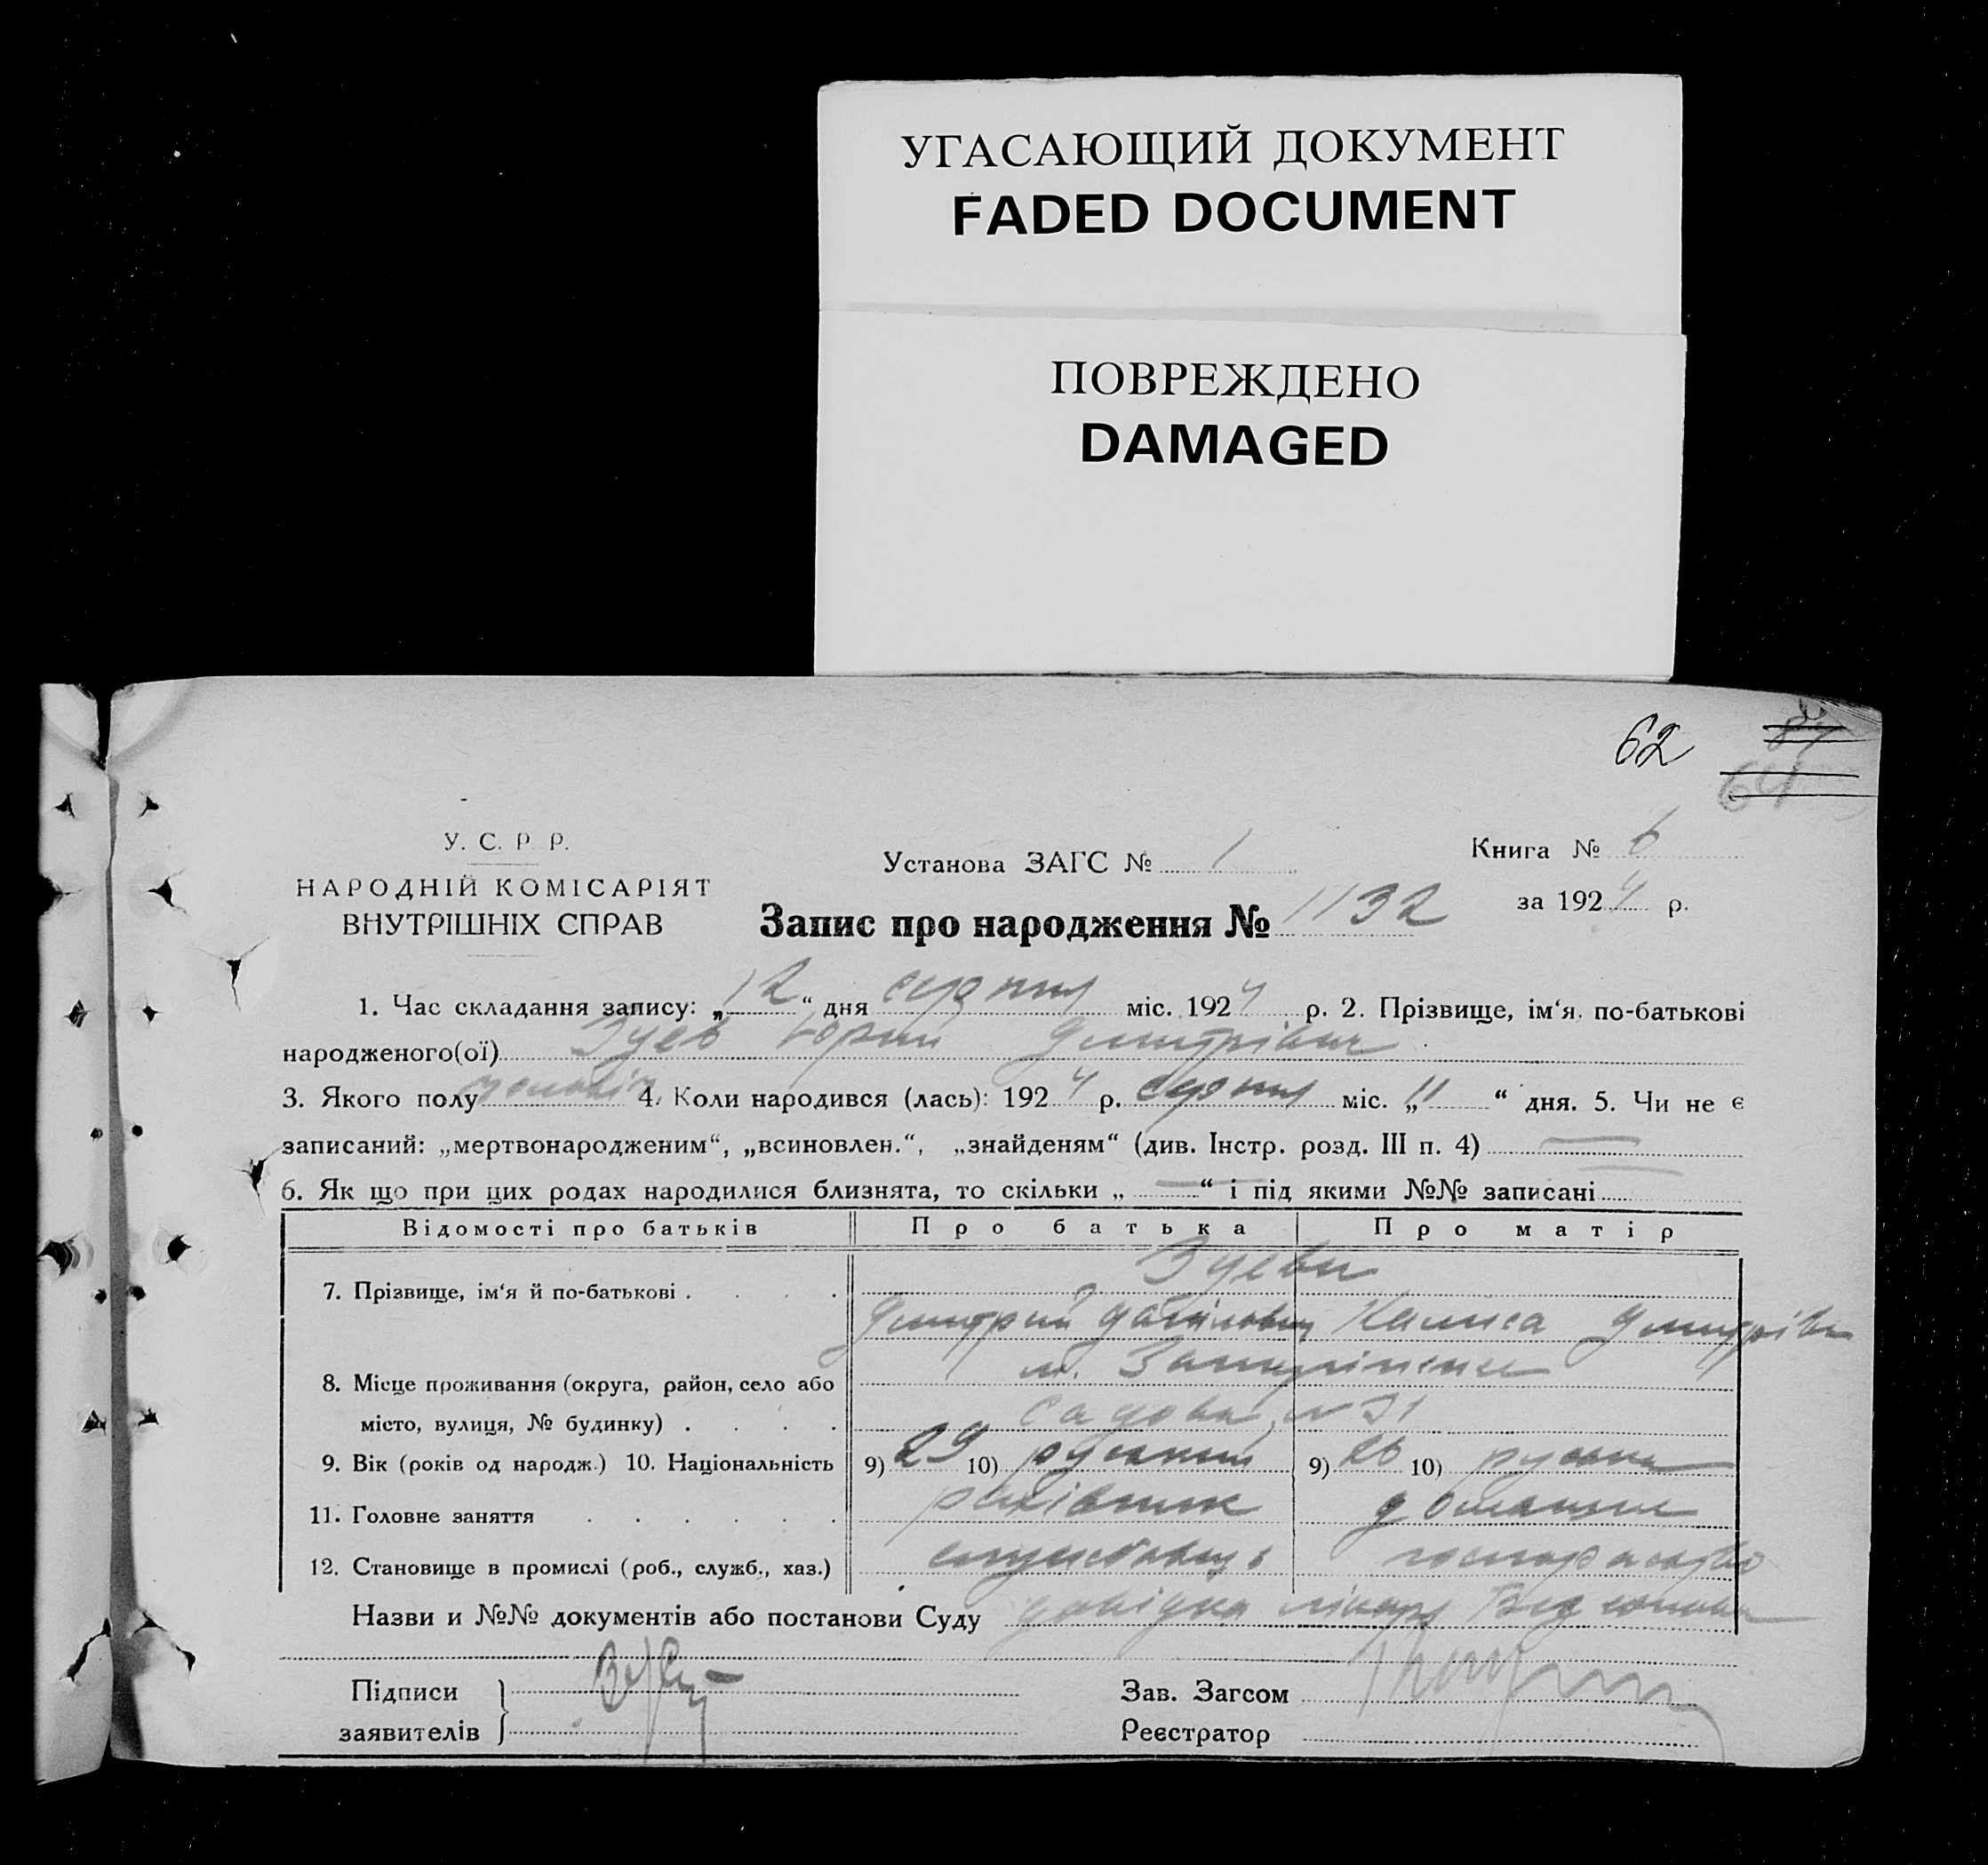 УГАСАЮЩИЙ ДОКУМЕНТ
FADED DOCUMENT
ПОВРЕЖДЕНО
DAMAGED
62
64
У. С. Р. Р.
НАРОДНІЙ КОМІСАРІЯТ
ВНУТРІШНІХ СПРАВ
Установа ЗАГС № 1
Книга № 6
за 1924 р.
Запис про народження № 1132
1. Час складання запису: „12“ дня серпня міс. 1924 р. 2. Прізвище, ім‘я. по-батькові
народженого(ої) Зуев Юрий Дмитрівич
3. Якого полу чоловіч 4. Коли народився (лась): 1924 р. серпня міс. „11“ дня. 5. Чи не є
записаний: „мертвонародженим“, „всиновлен.“, „знайденям“ (див. Інстр. розд. III п. 4)
6. Як що при цих родах народилися близнята, то скільки „ — “ і під якими №№ записані
Відомості про батьків Про батька Про матір
Зуеви
7. Прізвище, ім‘я й по-батькові .
Дмитрий Данилович Дмитрівн
8. Місце проживання (округа, район, село або
місто, вулиця, № будинку) . Садова, N 31
9. Вік (років од народж.) 10. Національність 9) 29 10) руський 9) 26 10) руська
11. Головне заняття рахівник домашне
12. Становище в промислі (роб., служб., хаз.) службовець господарство
Назви и №№ документів або постанови Суду довідка лікаря
Підписи
заявителів
Зав. Загсом
Реєстратор